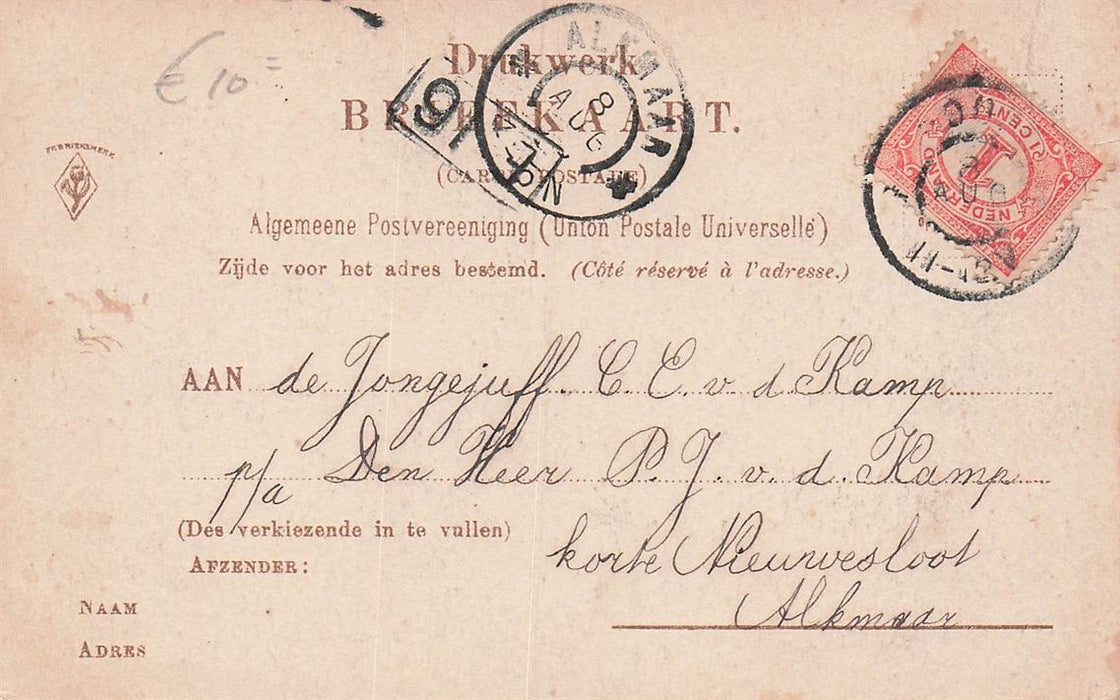 € 10 =
Drukwerk
BRIEFKAART.
(CARTE POSTALE)
ALKMAAR
8 AUG
FABRIEKSMERK
Algemeene Postvereeniging (Union Postale Universelle)
Zijde voor het adres bestemd. (Côté réservé à l'adresse.)
AAN de Jongejuff. C. E. v d Kamp
p/a Den Heer P. J. v. d. Kamp
(Des verkiezende in te vullen)
korte Nieuwesloot
AFZENDER:
Alkmaar
NAAM
ADRES